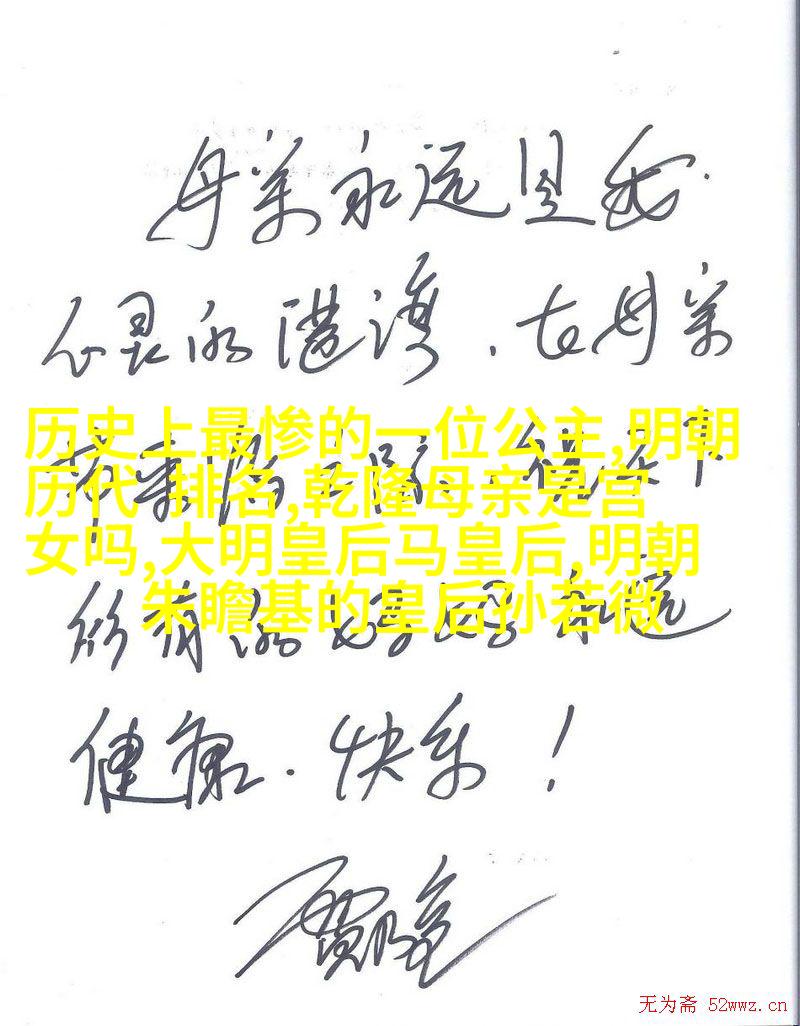 母亲永远是我
心灵的港湾、在母亲
历史上最惨的一位公主,明朝
历代 排名,乾隆母亲是宫
女吗,大明皇后马皇后,明朝
朱瞻基的皇后孙若微
所有的 永远
健康、快乐!
无为斋 52wwz.cn